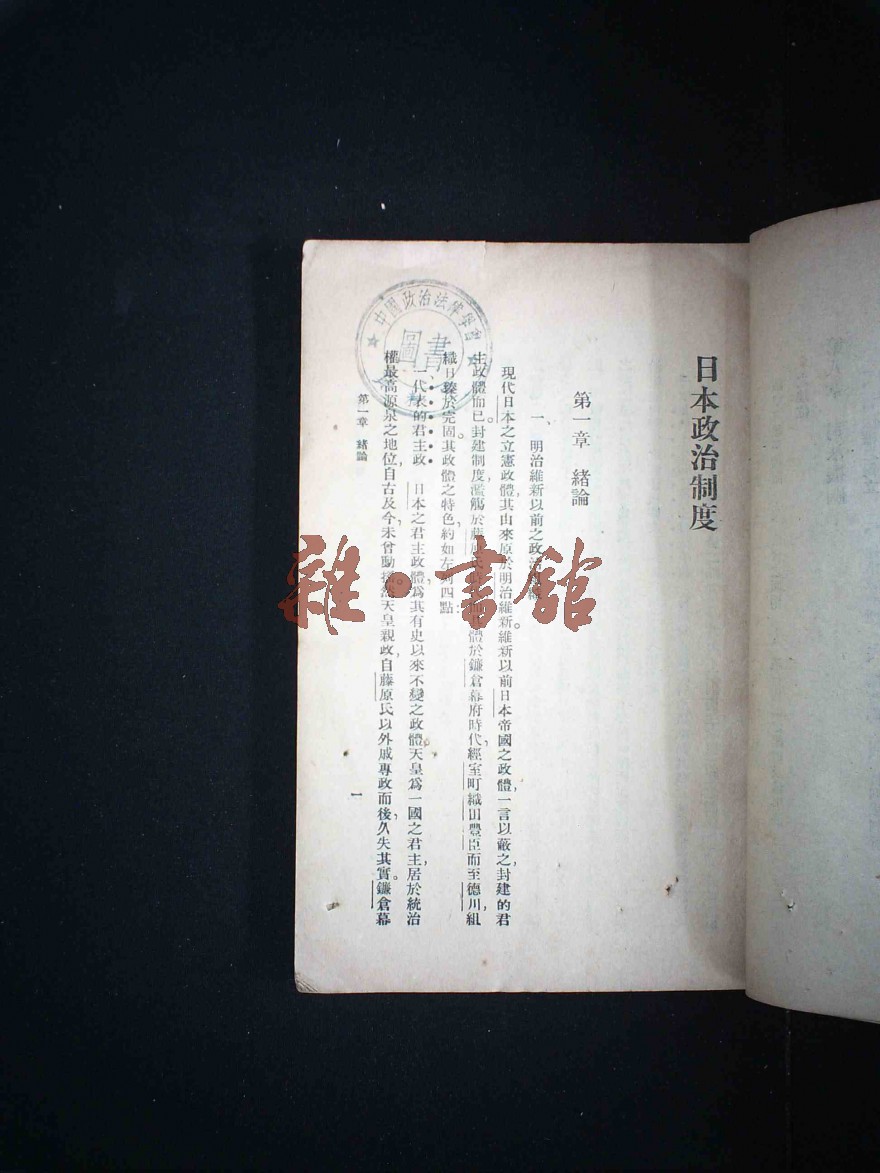 日本政治制度
第一章 緒論
一、明治維新以前之政治組織
現代日本之立憲政體,其由來原於明治維新。維新以前日本帝國之政體,一言以蔽之,封建的君
主政體而已。封建制度濫觴於藤原氏時代,體於鎌倉幕府時代,經室町織田豐臣而至德川,組
織日臻於完固。其政體之特色,約如左列四點:
一代表的君主政 日本之君主政體,爲其有史以來不變之政體。天皇爲一國之君主,居於統治
權最高源泉之地位,自古及今,未曾動搖。然天皇親政,自藤原氏以外戚專政而後,久失其實。鎌倉幕
第一章 緒論
一
中國政治法律學會
圖書
雜·書館